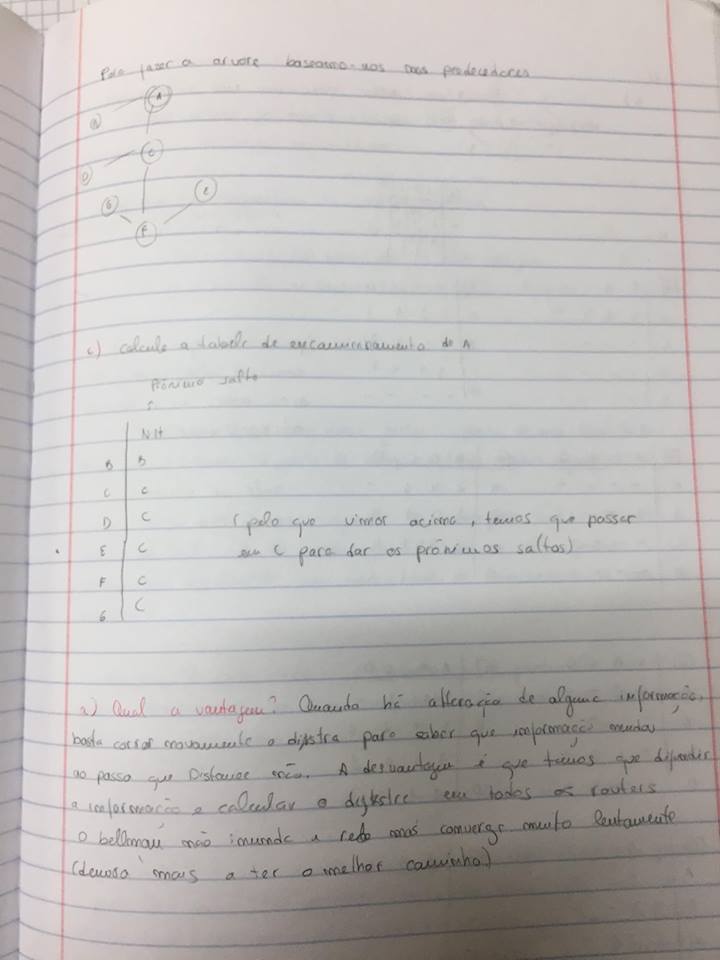 Para fazer a arvore baseamo-nos nos predecedores
A
B
C
D
G
E
F
c) Calcule a tabele de encaminhamento do A
Próximo salto
NH
B B
C C
D C (pelo que vimos acima, temos que passar
E C em C para dar os próximos saltos)
F C
G C
a) Qual a vantagem? Quando há alteração de alguma informação,
basta correr novamente o dijstra para saber que informação mudou
ao passo que Distance não. A desvantagem é que temos que difundir
a informação e calcular o em todos os routers
O bellman não inunda a rede mas converge muito lentamente
(demora mais a ter o melhor caminho)